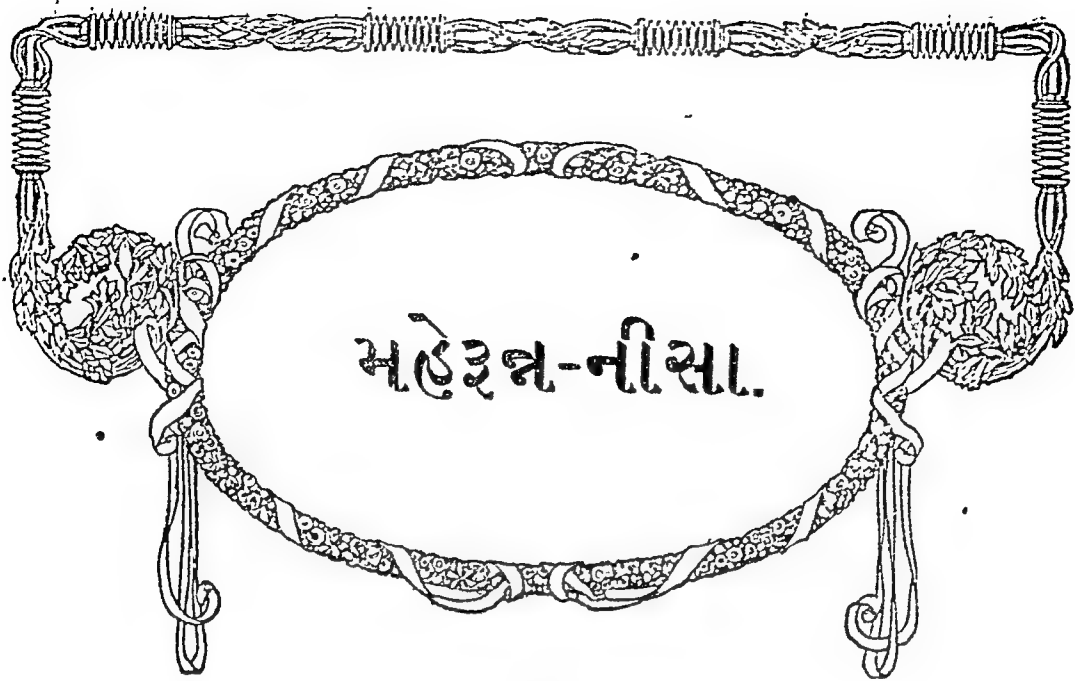 મહેરૂન્ન-નીસા.